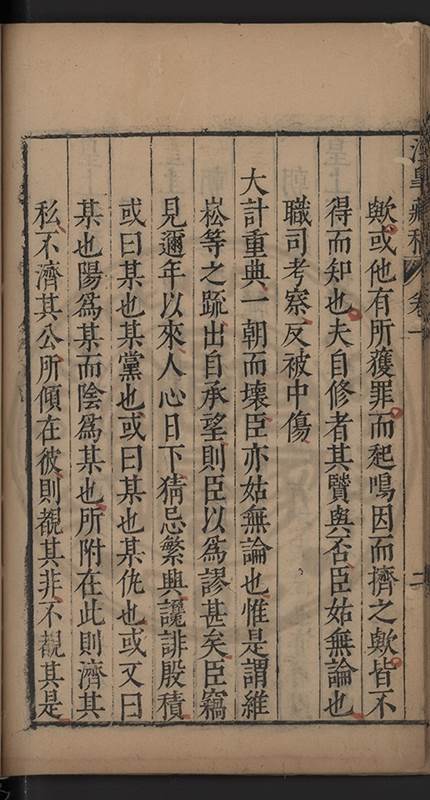 涇皋藏稿 卷一 二
歟或他有所獲罪而起鳴因而擠之歟皆不
得而知也夫自修者其賢與否臣姑無論也
職司考察反被中傷
大計重典一朝而壞臣亦姑無論也惟是謂維
崧等之䟽出自承望則臣以爲謬甚矣臣竊
見邇年以來人心日下猜忌繁興讒誹殷積
或曰某也某黨也或曰某也某仇也或又曰
某也陽爲某而陰爲某也所附在此則濟其
私不濟其公所傾在彼則覩其非不覩其是